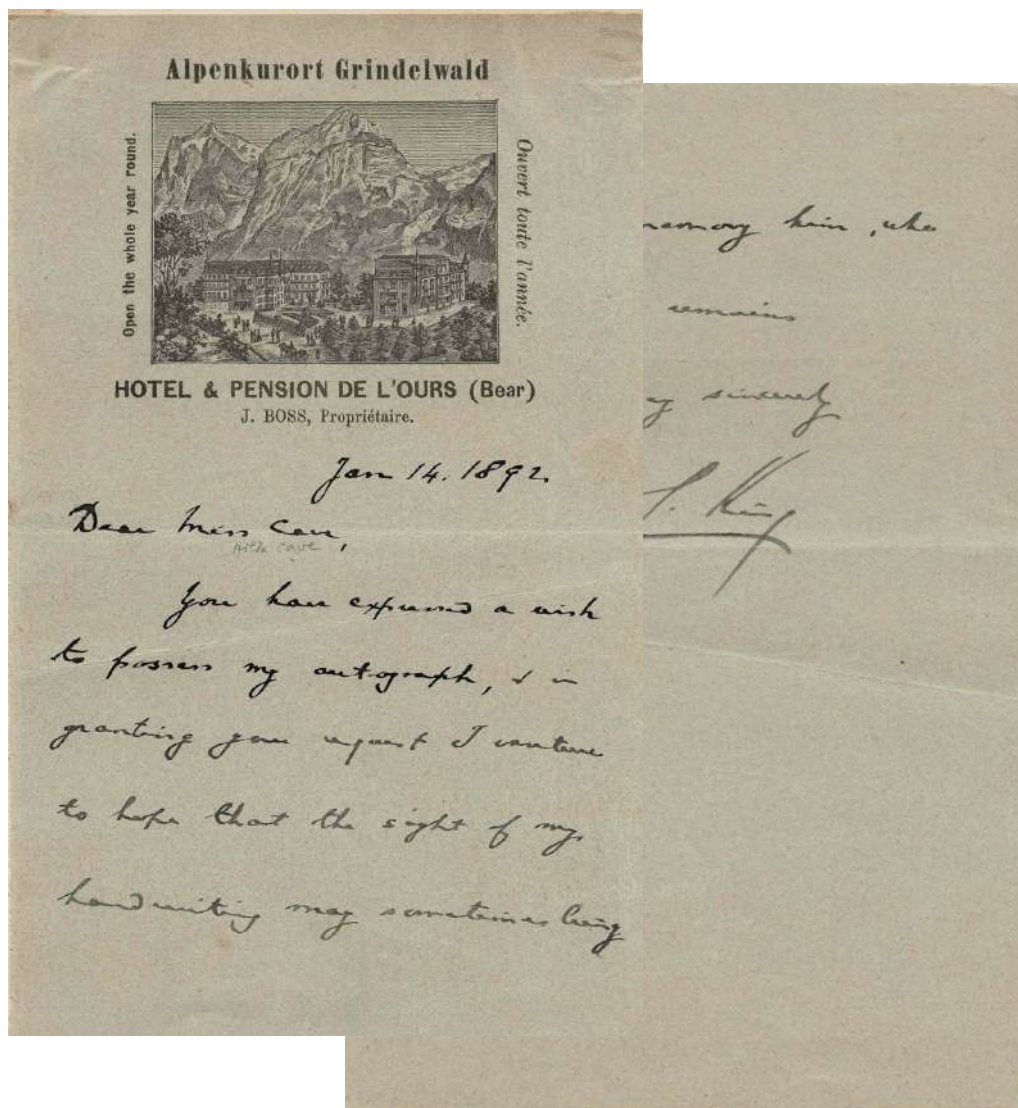 Alpenkurort Grindelwald
Open the whole year round.
Ouvert toute l'année.
HOTEL & PENSION DE L'OURS (Bear)
J. BOSS, Propriétaire.
Jan 14. 1892.
Dear Miss Cave,
Hilda Cave
You have expressed a wish
to possess my autograph, & in
granting your request I venture
to hope that the sight of my
handwriting may sometimes bring
memory him, who
remains
sincerely
S. King